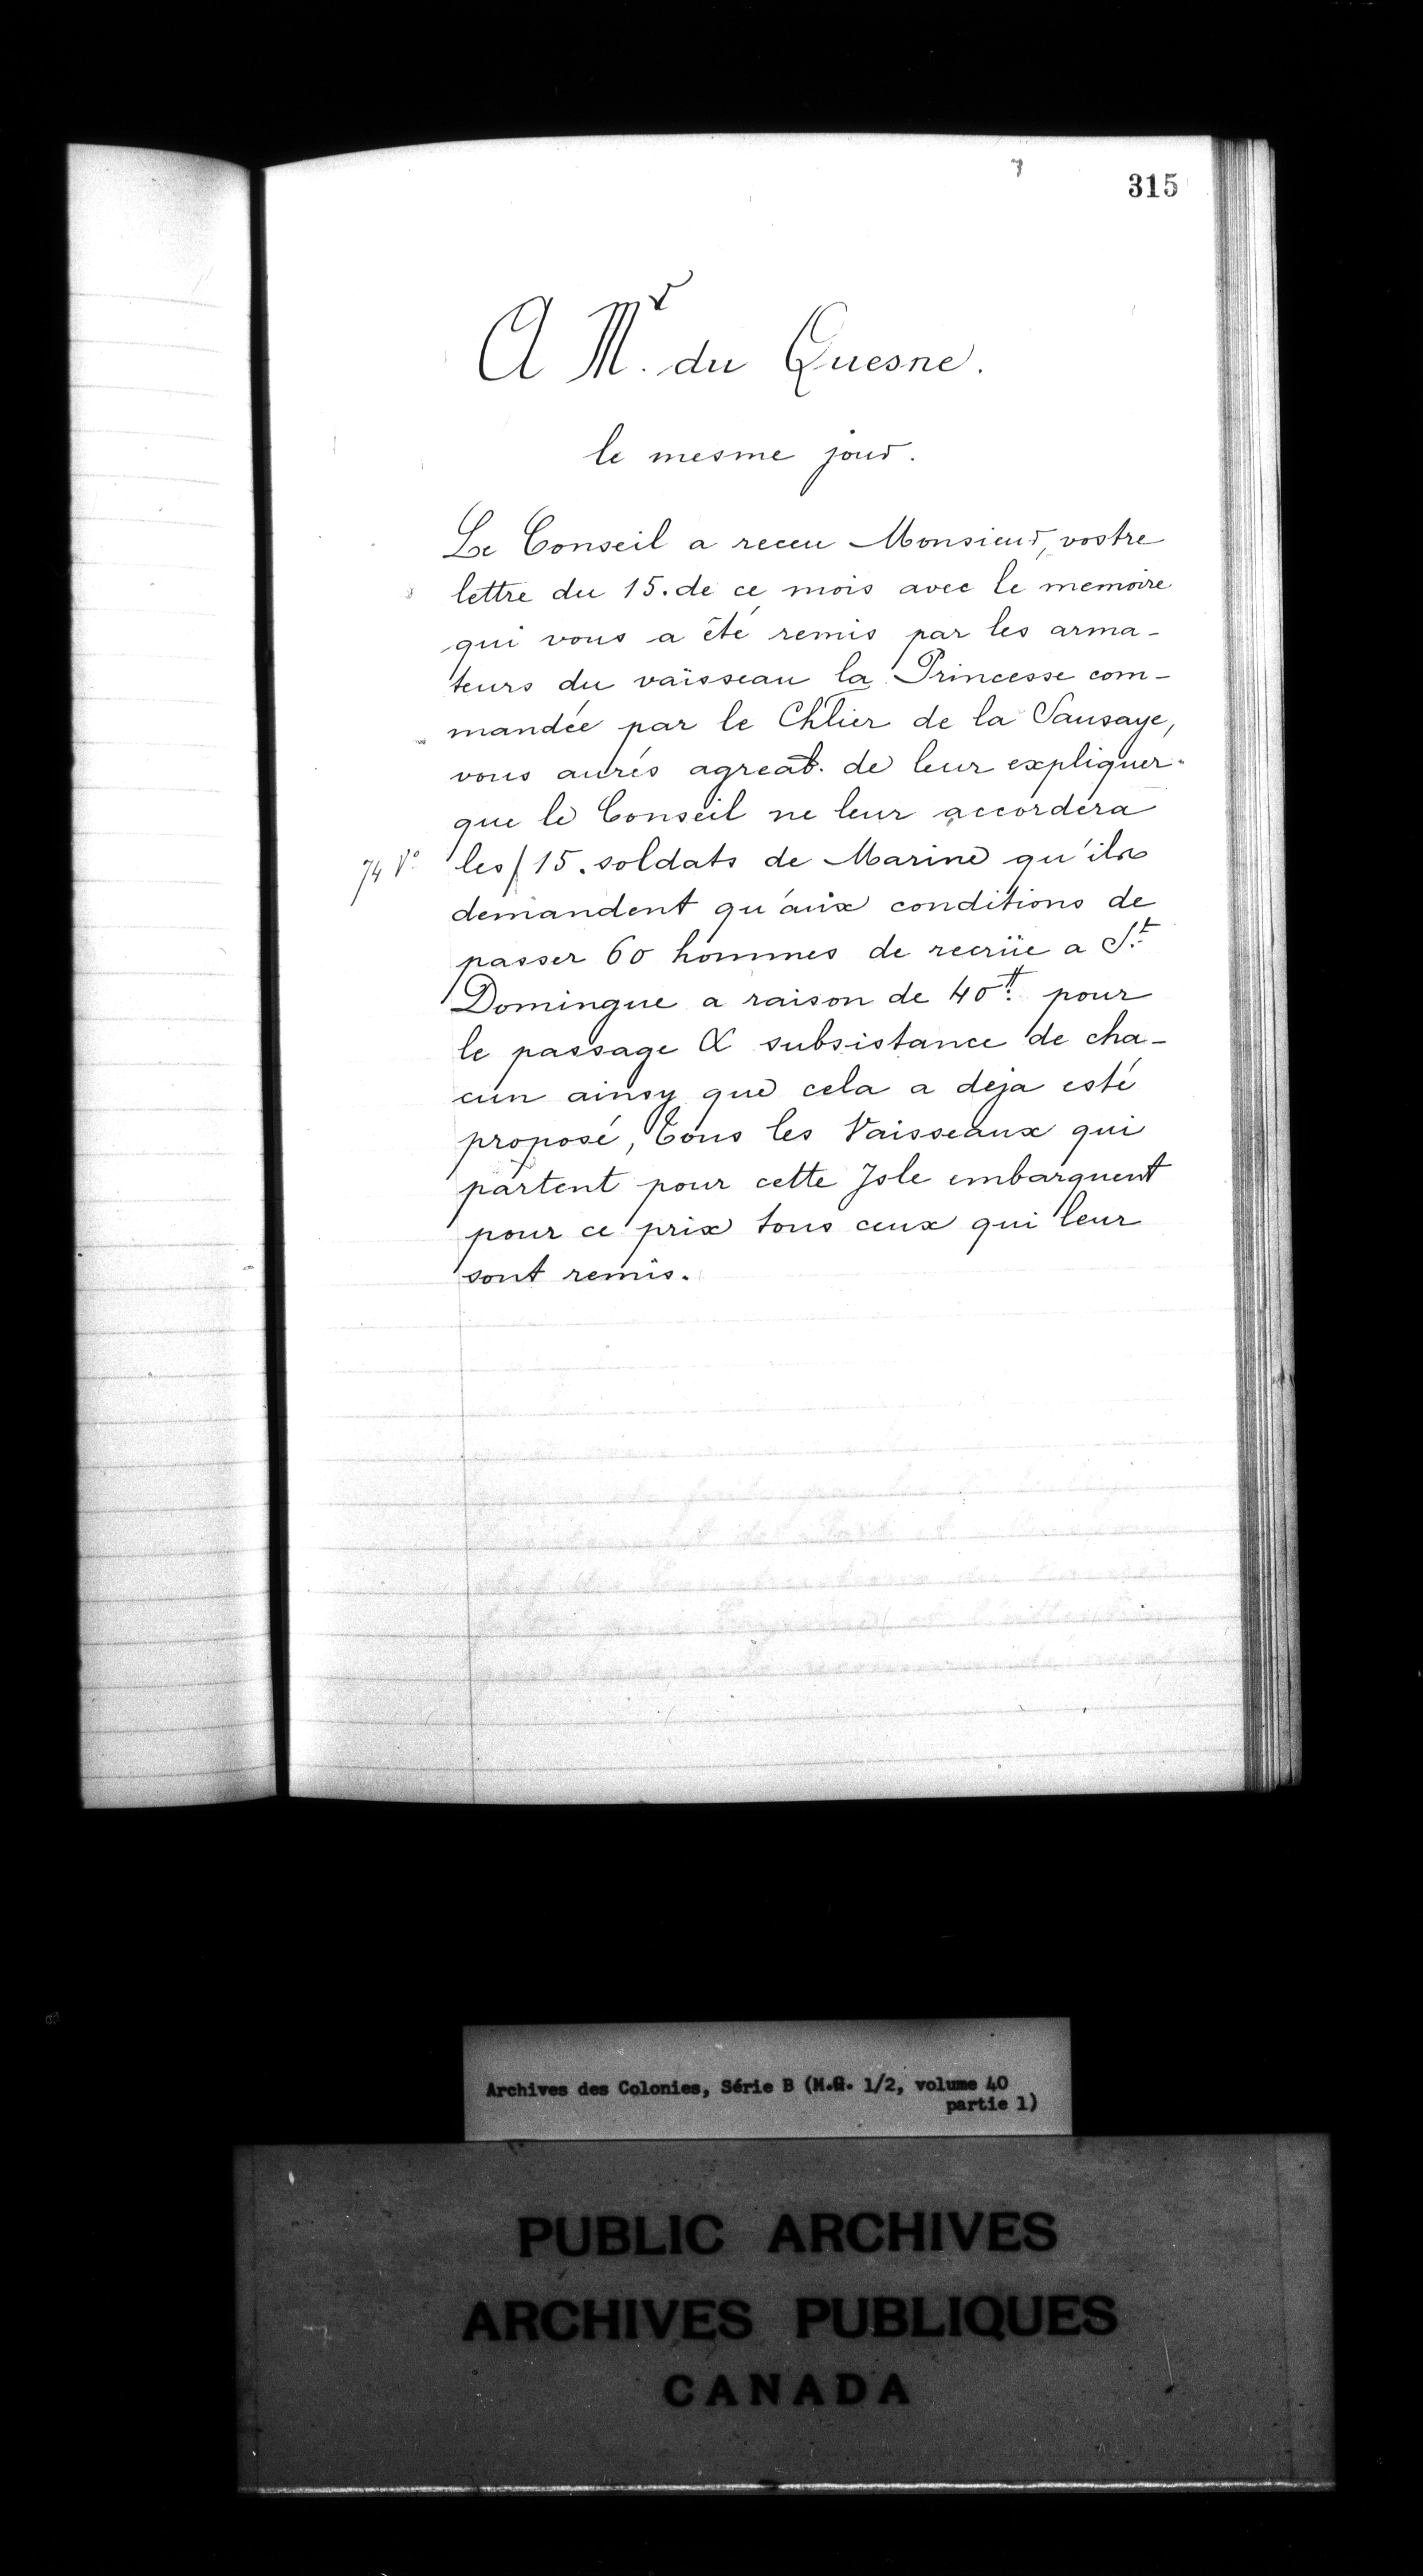 315
A Mr. du Quesne.
le mesme jour.
Le Conseil a receu Monsieur, vostre
lettre du 15. de ce mois avec le memoire
qui vous a été remis par les arma-
teurs du vaisseau la Princesse com-
mandée par le Chlier de la Sausaye,
vous aurés agreab. de leur expliquer
que le Conseil ne leur accordera
74 Vo les / 15. soldats de Marine qu'ils
demandent qu'aux conditions de
passer 60 hommes de recrüe a St.
Domingue a raison de 40tt. pour
le passage & subsistance de cha-
cun ainsy que cela a deja esté
proposé, Tous les Vaisseaux qui
partent pour cette Isle embarquent
pour ce prix tous ceux qui leur
sont remis.
Archives des Colonies, Série B (M.G. 1/2, volume 40
partie 1)
PUBLIC ARCHIVES
ARCHIVES PUBLIQUES
CANADA